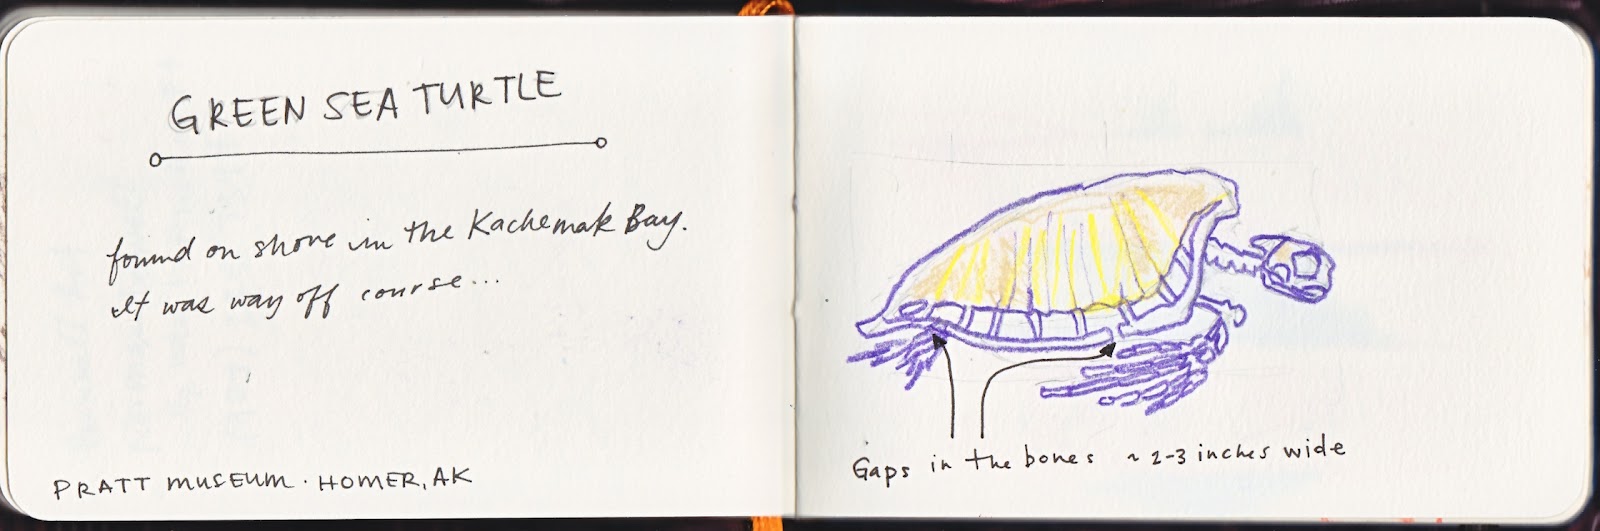 GREEN SEA TURTLE
found on shore in the Kachemak Bay.
It was way off course...
PRATT MUSEUM · HOMER, AK
Gaps in the bones ~ 2-3 inches wide